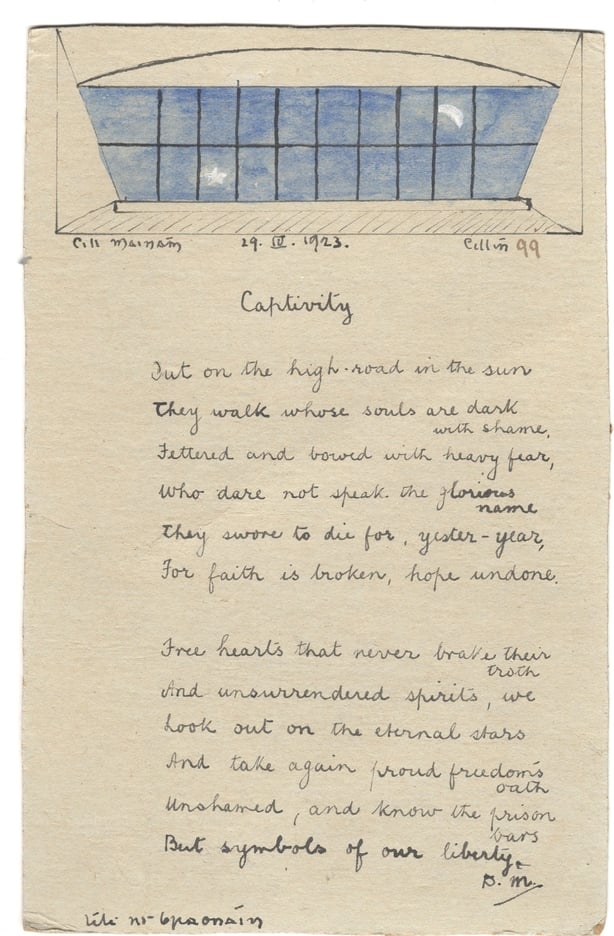 Cill Mainain 29. IV. 1923. Cillín 99
Captivity
Out on the high-road in the sun
They walk whose souls are dark
with shame,
Fettered and bowed with heavy fear,
Who dare not speak the glorious
name
They swore to die for, yester-year,
For faith is broken, hope undone.
Free hearts that never brake their
troth
And unsurrendered spirits, we
Look out on the eternal stars
And take again proud freedom's
oath
Unshamed, and know the prison
bars
But symbols of our liberty.
D. M.
Lile